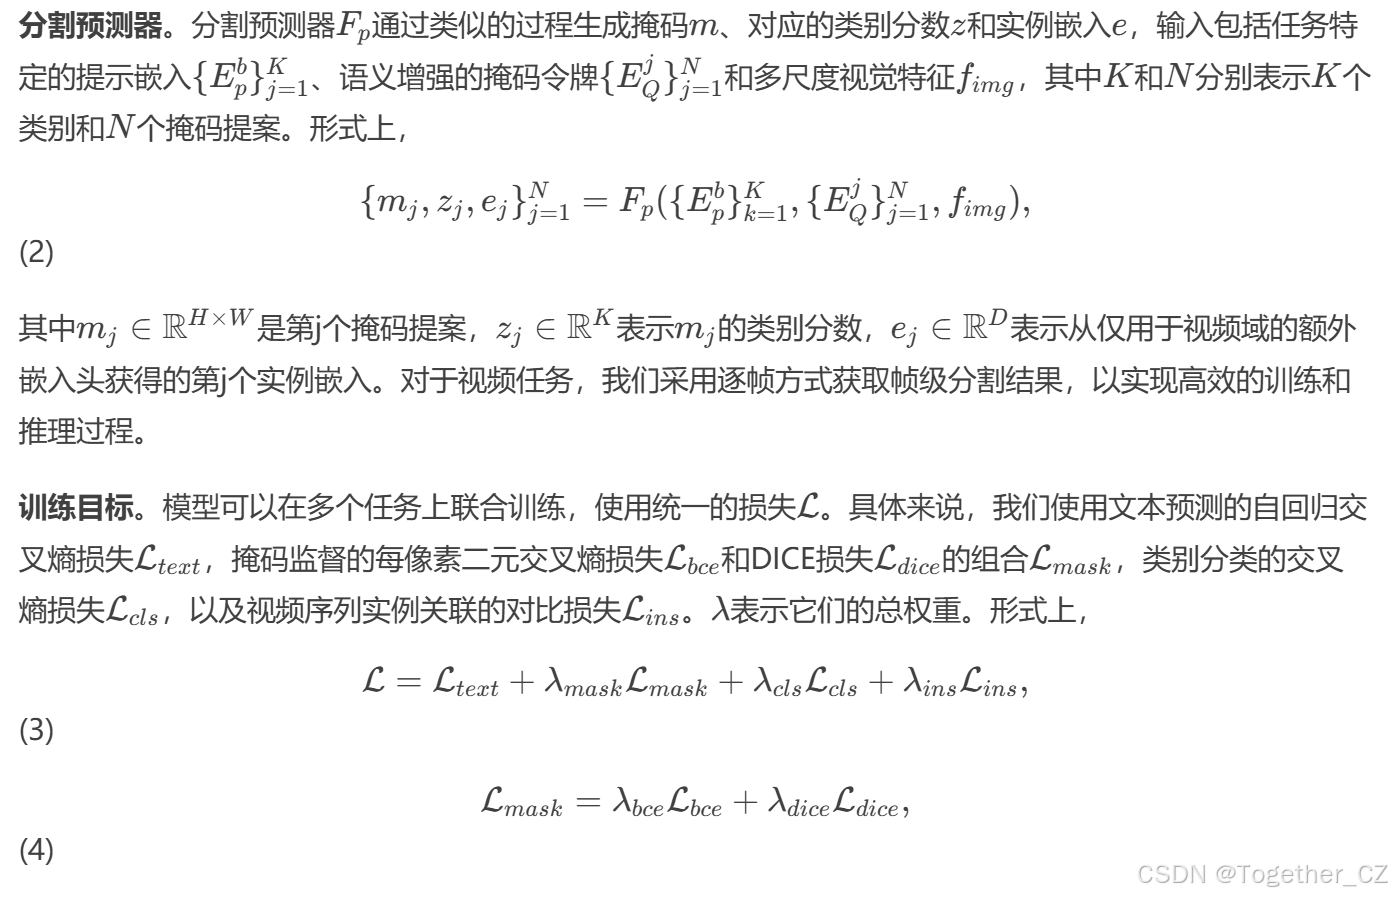 分割预测器。分割预测器$F_p$通过类似的过程生成掩码$m$、对应的类别分数$z$和实例嵌入$e$，输入包括任务特
定的提示嵌入$\{E_p^b\}_{j=1}^K$、语义增强的掩码令牌$\{E_Q^j\}_{j=1}^N$和多尺度视觉特征$f_{img}$，其中$K$和$N$分别表示$K$个
类别和$N$个掩码提案。形式上，
$\{m_j, z_j, e_j\}_{j=1}^N = F_p(\{E_p^b\}_{k=1}^K, \{E_Q^j\}_{j=1}^N, f_{img}),$
(2)
其中$m_j \in \mathbb{R}^{H \times W}$是第j个掩码提案，$z_j \in \mathbb{R}^K$表示$m_j$的类别分数，$e_j \in \mathbb{R}^D$表示从仅用于视频域的额外
嵌入头获得的第j个实例嵌入。对于视频任务，我们采用逐帧方式获取帧级分割结果，以实现高效的训练和
推理过程。
训练目标。模型可以在多个任务上联合训练，使用统一的损失$\mathcal{L}$。具体来说，我们使用文本预测的自回归交
叉熵损失$\mathcal{L}_{text}$，掩码监督的每像素二元交叉熵损失$\mathcal{L}_{bce}$和DICE损失$\mathcal{L}_{dice}$的组合$\mathcal{L}_{mask}$，类别分类的交叉
熵损失$\mathcal{L}_{cls}$，以及视频序列实例关联的对比损失$\mathcal{L}_{ins}$。$\lambda$表示它们的总权重。形式上，
$\mathcal{L} = \mathcal{L}_{text} + \lambda_{mask}\mathcal{L}_{mask} + \lambda_{cls}\mathcal{L}_{cls} + \lambda_{ins}\mathcal{L}_{ins},$
(3)
$\mathcal{L}_{mask} = \lambda_{bce}\mathcal{L}_{bce} + \lambda_{dice}\mathcal{L}_{dice},$
(4)
CSDN @Together_CZ